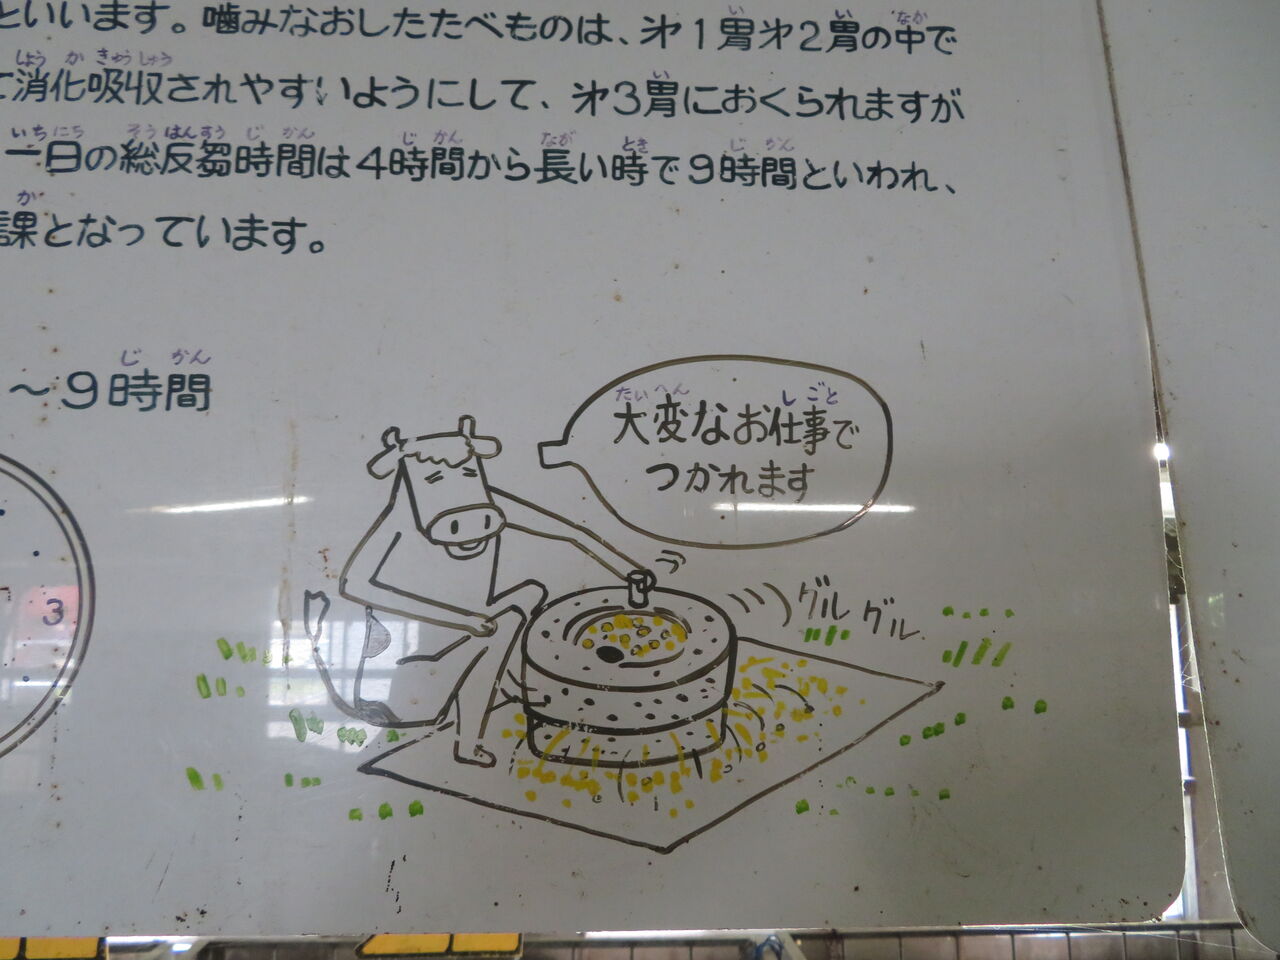 といいます。噛みなおしたたべものは、㐧1胃㐧2胃の中で
て消化吸収されやすいようにして、㐧3胃におくられますが
一日の総反芻時間は4時間から長い時で9時間といわれ、
課となっています。
～9時間
大変なお仕事で
つかれます
グル グル
3